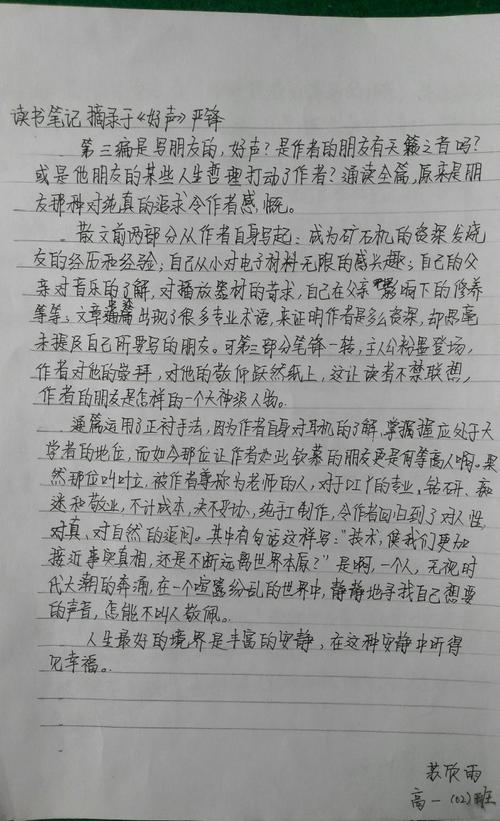 读书笔记 摘录于《好声》严锋
第三痛是写朋友的,好声?是作者的朋友有天籁之音吗?
或是他朋友的某些人生哲理打动了作者?通读全篇,原来是朋
友那种对纯真的追求令作者感慨。
散文前两部分从作者自身写起:成为矿石机的资深发烧
友的经历和经验;自己从小对电子材料无限的感兴趣;自己的父
亲对音乐的了解,对播放器材的苛求,自己在父亲影响下的修养
等等;文章出现了很多专业术语,来证明作者是多么资深,却丝毫
未提及自己所要写的朋友。可第三部分笔锋一转,主人公粉墨登场,
作者对他的崇拜,对他的敬仰跃然纸上,这让读者不禁联想,
作者的朋友是怎样的一个大神级人物。
通篇运用了正衬手法,因为作者自身对耳机的了解、掌握应处于大
学者的地位,而如今那位让作者如此钦慕的朋友更是有等高人啊。果
然那位叫叶立,被作者尊称为老师的人,对于DIY的专业、钻研、痴
迷和敬业,不计成本,决不妥协,纯手工制作,令作者回归到了对人性、
对真、对自然的追问。其中有句话这样写:"技术,使我们更加
接近事实真相,还是不断远离世界本原?"是啊,一个人,无视时
代大潮的奔涌,在一个喧嚣纷乱的世界中,静静地寻找自己想要
的声音,怎能不叫人敬佩。
人生最好的境界是丰富的安静,在这种安静中听得
见幸福。
苏欣雨
高一(02)班